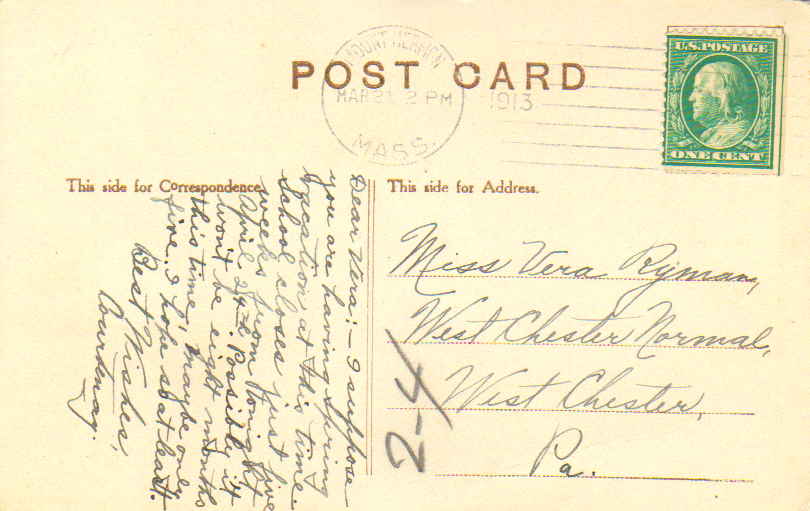 MOUNT HERMON
MAR 21 2 PM
1913
MASS.
POST CARD
U.S. POSTAGE
ONE CENT
This side for Correspondence.
This side for Address.
Dear Vera:- I suppose
you are having Spring
vacation at this time.
School closes just five
weeks from tonight
April 24th. Possible it
won't be eight months
this time, maybe only
five. I hope so at least.
Best Wishes,
Courtenay.
Miss Vera Ryman,
West Chester Normal,
West Chester,
Pa.
2-4